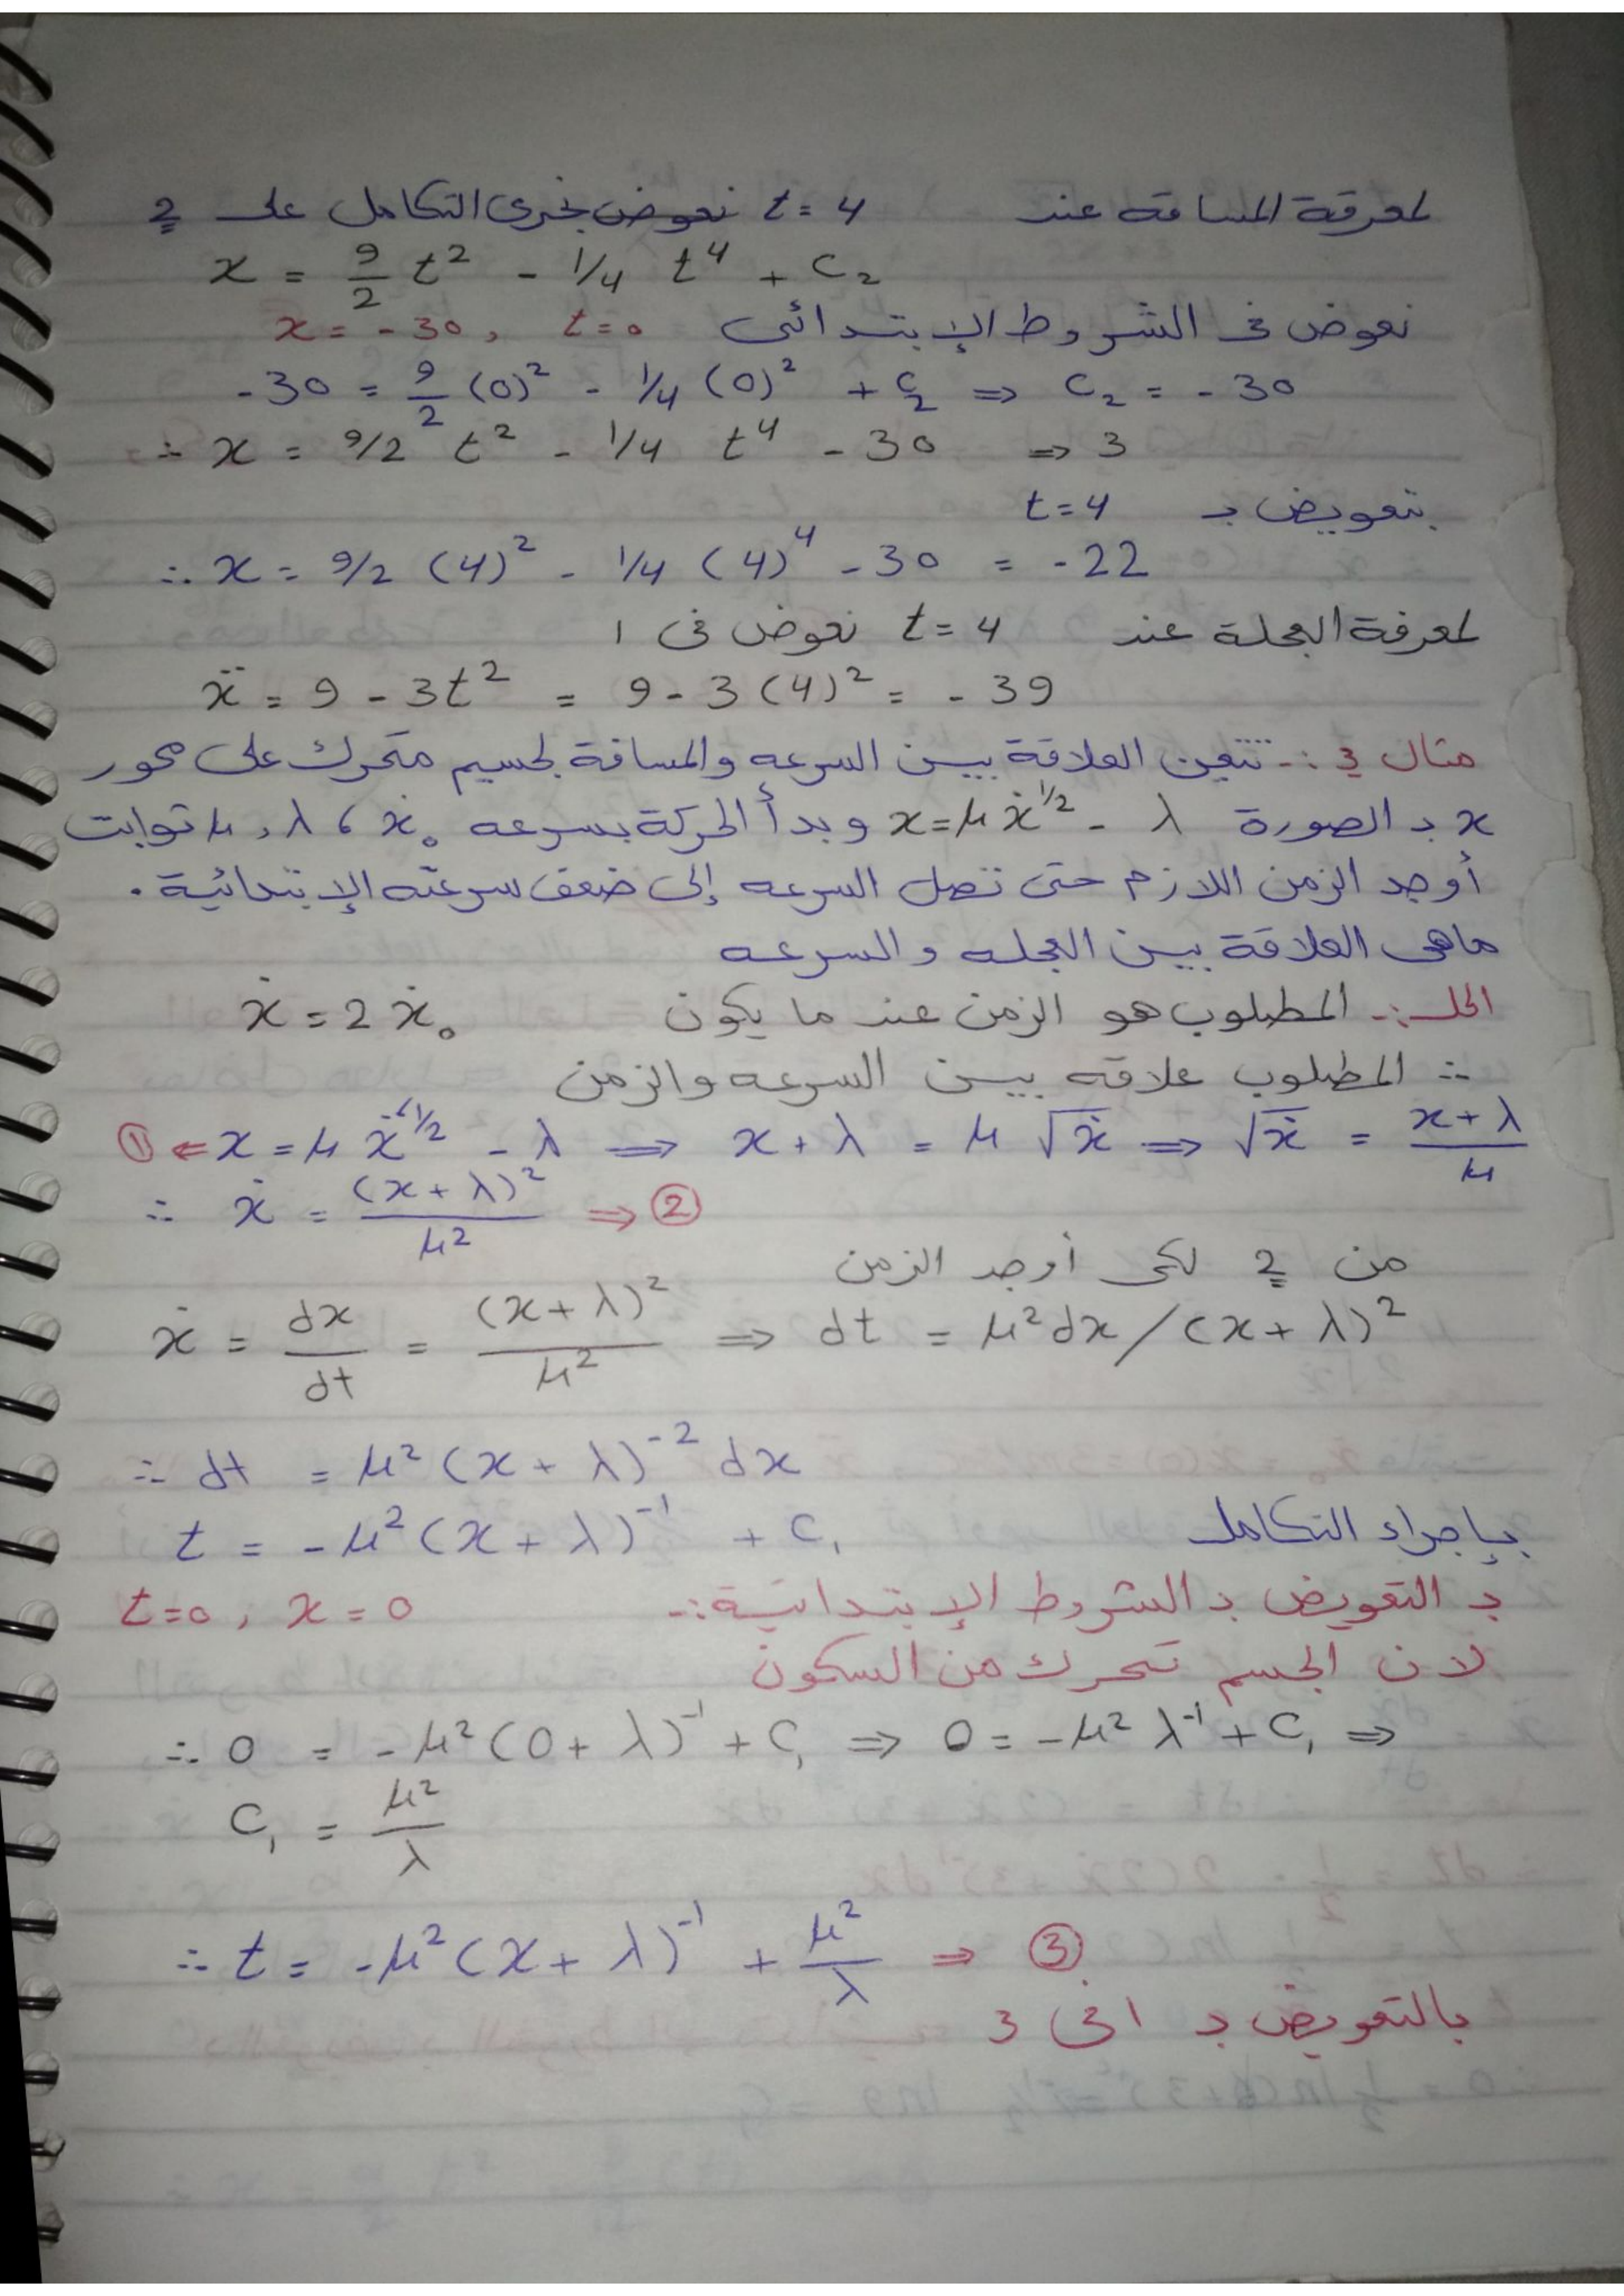 لمعرفة المسافة عند t = 4 نعوض نجرى التكامل على 2
x = 9/2 t² - 1/4 t⁴ + c₂
نعوض فى الشروط الإبتدائى x = -30 , t = 0
-30 = 9/2 (0)² - 1/4 (0)² + c₂ ⇒ c₂ = -30
∴ x = 9/2 t² - 1/4 t⁴ - 30 ⇒ 3
بتعويض بـ t = 4
∴ x = 9/2 (4)² - 1/4 (4)⁴ - 30 = -22
لمعرفة العجلة عند t = 4 نعوض فى ١
ẍ = 9 - 3t² = 9 - 3(4)² = -39
مثال 3 :- تتعين العلاقة بين السرعه والمسافة لجسيم متحرك على محور
x بـ الصورة x = μ ẋ^1/2 - λ وبدأ الحركة بسرعه ẋ₀ ، λ , μ توابت
أوجد الزمن اللازم حتى تصل السرعه إلى ضعف سرعته الإبتدائية .
ماهى العلاقة بين العجله والسرعه
الحل :- المطلوب هو الزمن عند ما يكون ẋ = 2 ẋ₀
∴ المطلوب علاقه بين السرعه والزمن
① ⇐ x = μ ẋ^1/2 - λ ⇒ x + λ = μ √ẋ ⇒ √ẋ = (x + λ)/μ
∴ ẋ = (x + λ)²/μ² ⇒ ②
من 2 لكى أوجد الزمن
ẋ = dx/dt = (x + λ)²/μ² ⇒ dt = μ² dx / (x + λ)²
∴ dt = μ² (x + λ)⁻² dx
بإجراء التكامل t = -μ² (x + λ)⁻¹ + c₁
بـ التعويض بـ الشروط الإبتدائية :- t = 0 , x = 0
لان الجسم تحرك من السكون
∴ 0 = -μ² (0 + λ)⁻¹ + c₁ ⇒ 0 = -μ² λ⁻¹ + c₁ ⇒
c₁ = μ²/λ
∴ t = -μ² (x + λ)⁻¹ + μ²/λ ⇒ ③
بالتعويض بـ ١ فى 3